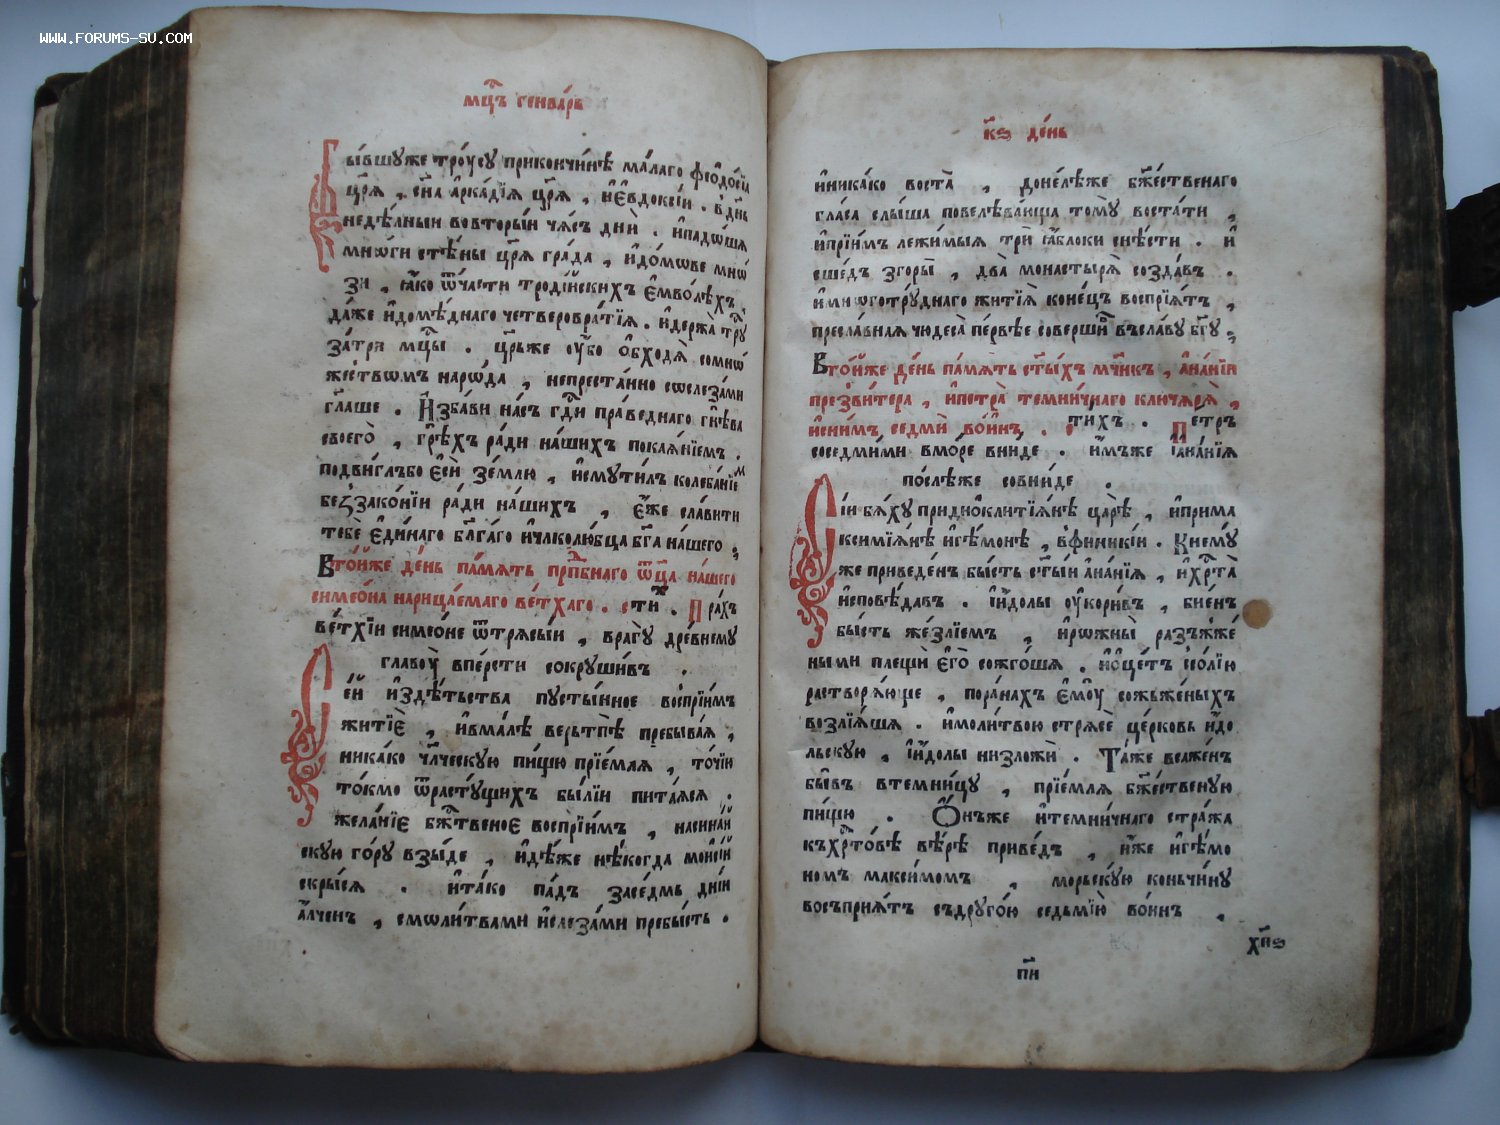 WWW.FORUMS-SU.COM
мц҃ъ генва́рь
Бы́вшуже тро́усу прикончи́нѣ ма́лаго ѳео҆до́сїа
цр҃я , сн҃а а҆рка́дїя цр҃я , и҆е҆вдокси́и . в дн҃ь
недѣ́лныи вовторы́и ча́съ дни̏ . и҆падо́ша
мно́ги стѣ́ны цр҃я гра́да , и҆до́мове мно́
зи , ꙗ҆́ко ѿча́сти троді́искихъ е҆мво́лѣхъ ,
да́же и҆домѣ́днаго четверовра́тїя . и҆держа̀ трꙋ́
за́три мц҃ы . цр҃ьже ᲂу҆́бо ѻ҆бходѧ̀ сомно́
жествомъ наро́да , непреста́нно сослеза́ми
гл҃аше . И҆зба́ви на́съ гд҃и пра́веднаго гнѣ́ва
своего̀ , грѣ́хъ ра́ди на́шихъ покая́нїемъ .
подви́глъбо е҆сѝ зе́млю , и҆смути́лъ колеба́нїем
беззако́нїи ра́ди на́шихъ , е҆́же сла́вити
тебѐ е҆ди́наго бл҃га́го и҆чл҃колю́бца бг҃а на́шего .
Вто́йже де́нь па́мять прпⷣбнаго ѿц҃а на́шего
симео́на нарица́емаго ве́тхаго . сти́х . Пра́хъ
ве́тхїи симео́не ѿтрясы́и , врагу̀ дре́внему
главоу̀ впе́рсти сокруши́въ .
Се́й и҆здѣ́тьства пусты́нное воспрїи́мъ
житїѐ , и҆вма́лѣ верьтпѣ̀ пребыва́я ,
ника́ко чл҃ческую пи́щю прїе́мая , то́чїи
то́кмо ѿрасту́щихъ бы́лїи пита́яся .
жела́нїе бж҃твеное воспрїи́мъ , насина́й
скую го́ру взы́де , и҆дѣ́же нѣ́когда мои҆сі́й
скры́ся . и҆та́ко па́дъ засе́дмь дні́й
а҆́лченъ , смоли́твами и҆слеза́ми пребы́сть .
к҃ѕ де́нь
и҆ника́ко воста̀ , доне́лѣже бж҃е́ственаго
гла́са слы́ша повелѣва́юща тому̀ воста́ти ,
и҆прїи́мъ лежи́мыя трѝ ꙗ҆́блоки снѣ́сти . и҆
сше́дъ згоры̀ , два̀ монастыря̀ созда́въ .
и҆многотру́днаго житїя̀ коне́цъ воспрїя́тъ ,
пресла́вная чюдеса̀ пе́рвѣе соверши́в въсла́ву бг҃у .
Вто́йже де́нь па́мять ст҃ы́хъ мч҃нкъ , а҆на́нїи
презви́тера , и҆петра̀ темни́чнаго ключаря̀ ,
и҆сни́мъ седмѝ во́инъ . стихъ . Пе́тръ
соседми́ми вмо́ре вни́де . и҆́мъже і҆ана́нїя
по́слѣже совни́де .
Сі́и бя́ху придиоклитїя́нѣ царѣ̀ , и҆прима
ксимїя́нѣ и҆ге́монѣ , вфиники́и . Кнему́
же приведе́нъ бы́сть ст҃ы́и а҆на́нїя , и҆хр҃та̀
и҆сповѣ́давъ . і҆́долы ᲂу҆кори́въ , бие́нъ
бы́сть же́злїемъ , и҆рожны̀ разъжже́
ными плещѝ е҆го̀ сожго́ша . и҆о҆це́тъ со́лїю
растворя́юще , пора́нахъ е҆мᲂу̀ сожьже́ныхъ
возлїя́ша . и҆моли́твою стрясѐ це́рковь и҆до
льскую , і҆́долы низложѝ . Та́же всаже́нъ
бы́въ втемни́цу , прїе́мая бж҃е́ственую
пи́щю . Ѻ҆́нъже и҆темни́чнаго стра́жа
къхр҃то́вѣ вѣ́рѣ приве́дъ , и҆́же и҆ге́мо
номъ максимомъ , морьску́ю коньчи́ну
восъприя́тъ съдруго́ю седьмїю̀ во́инъ .
хп҃ѕ
п҃и